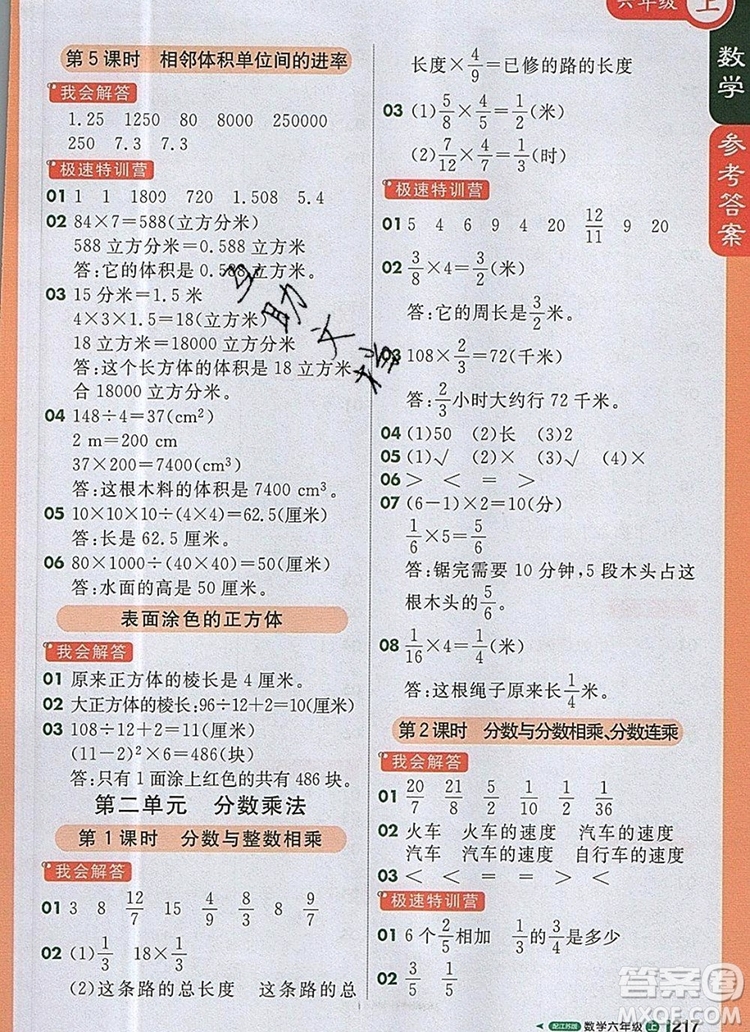 六年级 上
数学
参考答案
第5课时 相邻体积单位间的进率
我会解答
1.25 1250 80 8000 250000
250 7.3 7.3
极速特训营
01 1 1 1800 720 1.508 5.4
02 84×7=588(立方分米)
588立方分米=0.588立方米
答:它的体积是0.588立方米。
03 15分米=1.5米
4×3×1.5=18(立方米)
18立方米=18000立方分米
答:这个长方体的体积是18立方米,
合18000立方分米。
04 148÷4=37(cm²)
2 m=200 cm
37×200=7400(cm³)
答:这根木料的体积是7400 cm³。
05 10×10×10÷(4×4)=62.5(厘米)
答:长是62.5厘米。
06 80×1000÷(40×40)=50(厘米)
答:水面的高是50厘米。
表面涂色的正方体
我会解答
01 原来正方体的棱长是4厘米。
02 大正方体的棱长:96÷12+2=10(厘米)
03 108÷12+2=11(厘米)
(11-2)²×6=486(块)
答:只有1面涂上红色的共有486块。
第二单元 分数乘法
第1课时 分数与整数相乘
我会解答
01 3 8 12/7 15 4/9 8/3 9 8/7
02 (1)1/3 18×1/3
(2)这条路的总长度 这条路的总
长度×4/9=已修的路的长度
03 (1)5/8×4/5=1/2(米)
(2)7/12×4/7=1/3(时)
极速特训营
01 5 4 9 4 20 12/11 9 20
02 3/8×4=3/2(米)
答:它的周长是3/2米。
03 108×2/3=72(千米)
答:2/3小时大约行72千米。
04 (1)50 (2)长 (3)2
05 (1)√ (2)× (3)√
06 > < = > <
07 (6-1)×2=10(分)
1/6×5=5/6
答:锯完需要10分钟,5段木头占这
根木头的5/6。
08 1/16×4=1/4(米)
答:这根绳子原来长1/4米。
第2课时 分数与分数相乘、分数连乘
我会解答
01 20/7 21/8 5/18 2/5 1/6 1/36
02 火车 火车的速度 汽车的速度
汽车 汽车的速度 自行车的速度
03 < = = < < <
极速特训营
01 6个2/5相加 1/3的3/4是多少
02 3/5 1/2
答案圈
MXQE.COM
配江苏版 数学六年级 上 217